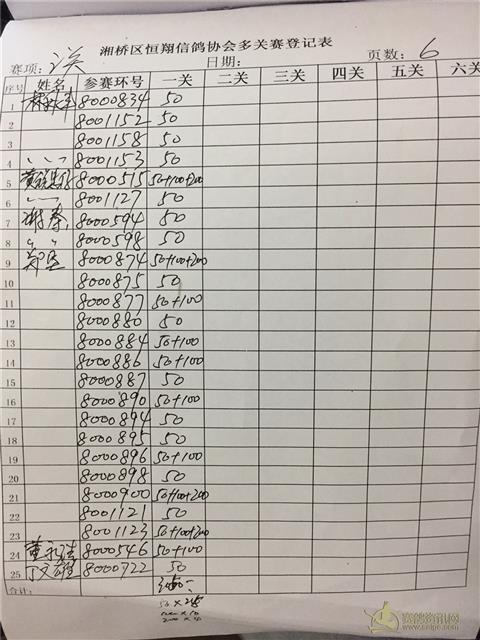 湘桥区恒翔信鸽协会多关赛登记表
赛项: 2关 日期: 页数: 6
序号 姓名 参赛环号 一关 二关 三关 四关 五关 六关
1 8000834 50
2 8001152 50
3 8001158 50
4 、、、 8001153 50
5 8000515 50+100+200
6 、、、 8001127 50
7 谢泰 8000594 50
8 〃 〃 8000598 50
9 郑 8000874 50+100+200
10 8000875 50
11 8000877 50+100
12 8000880 50
13 8000884 50+100
14 8000886 50+100
15 8000887 50
16 8000890 50+100
17 8000894 50
18 8000895 50
19 8000896 50+100
20 8000898 50
21 8000900 50+100+200
22 8001121 50
23 8001123 50+100+200
24 董永 8000546 50+100
25 丁文雄 8000722 50
合计:
50×25
100×10
200×4
赛鸽资讯网